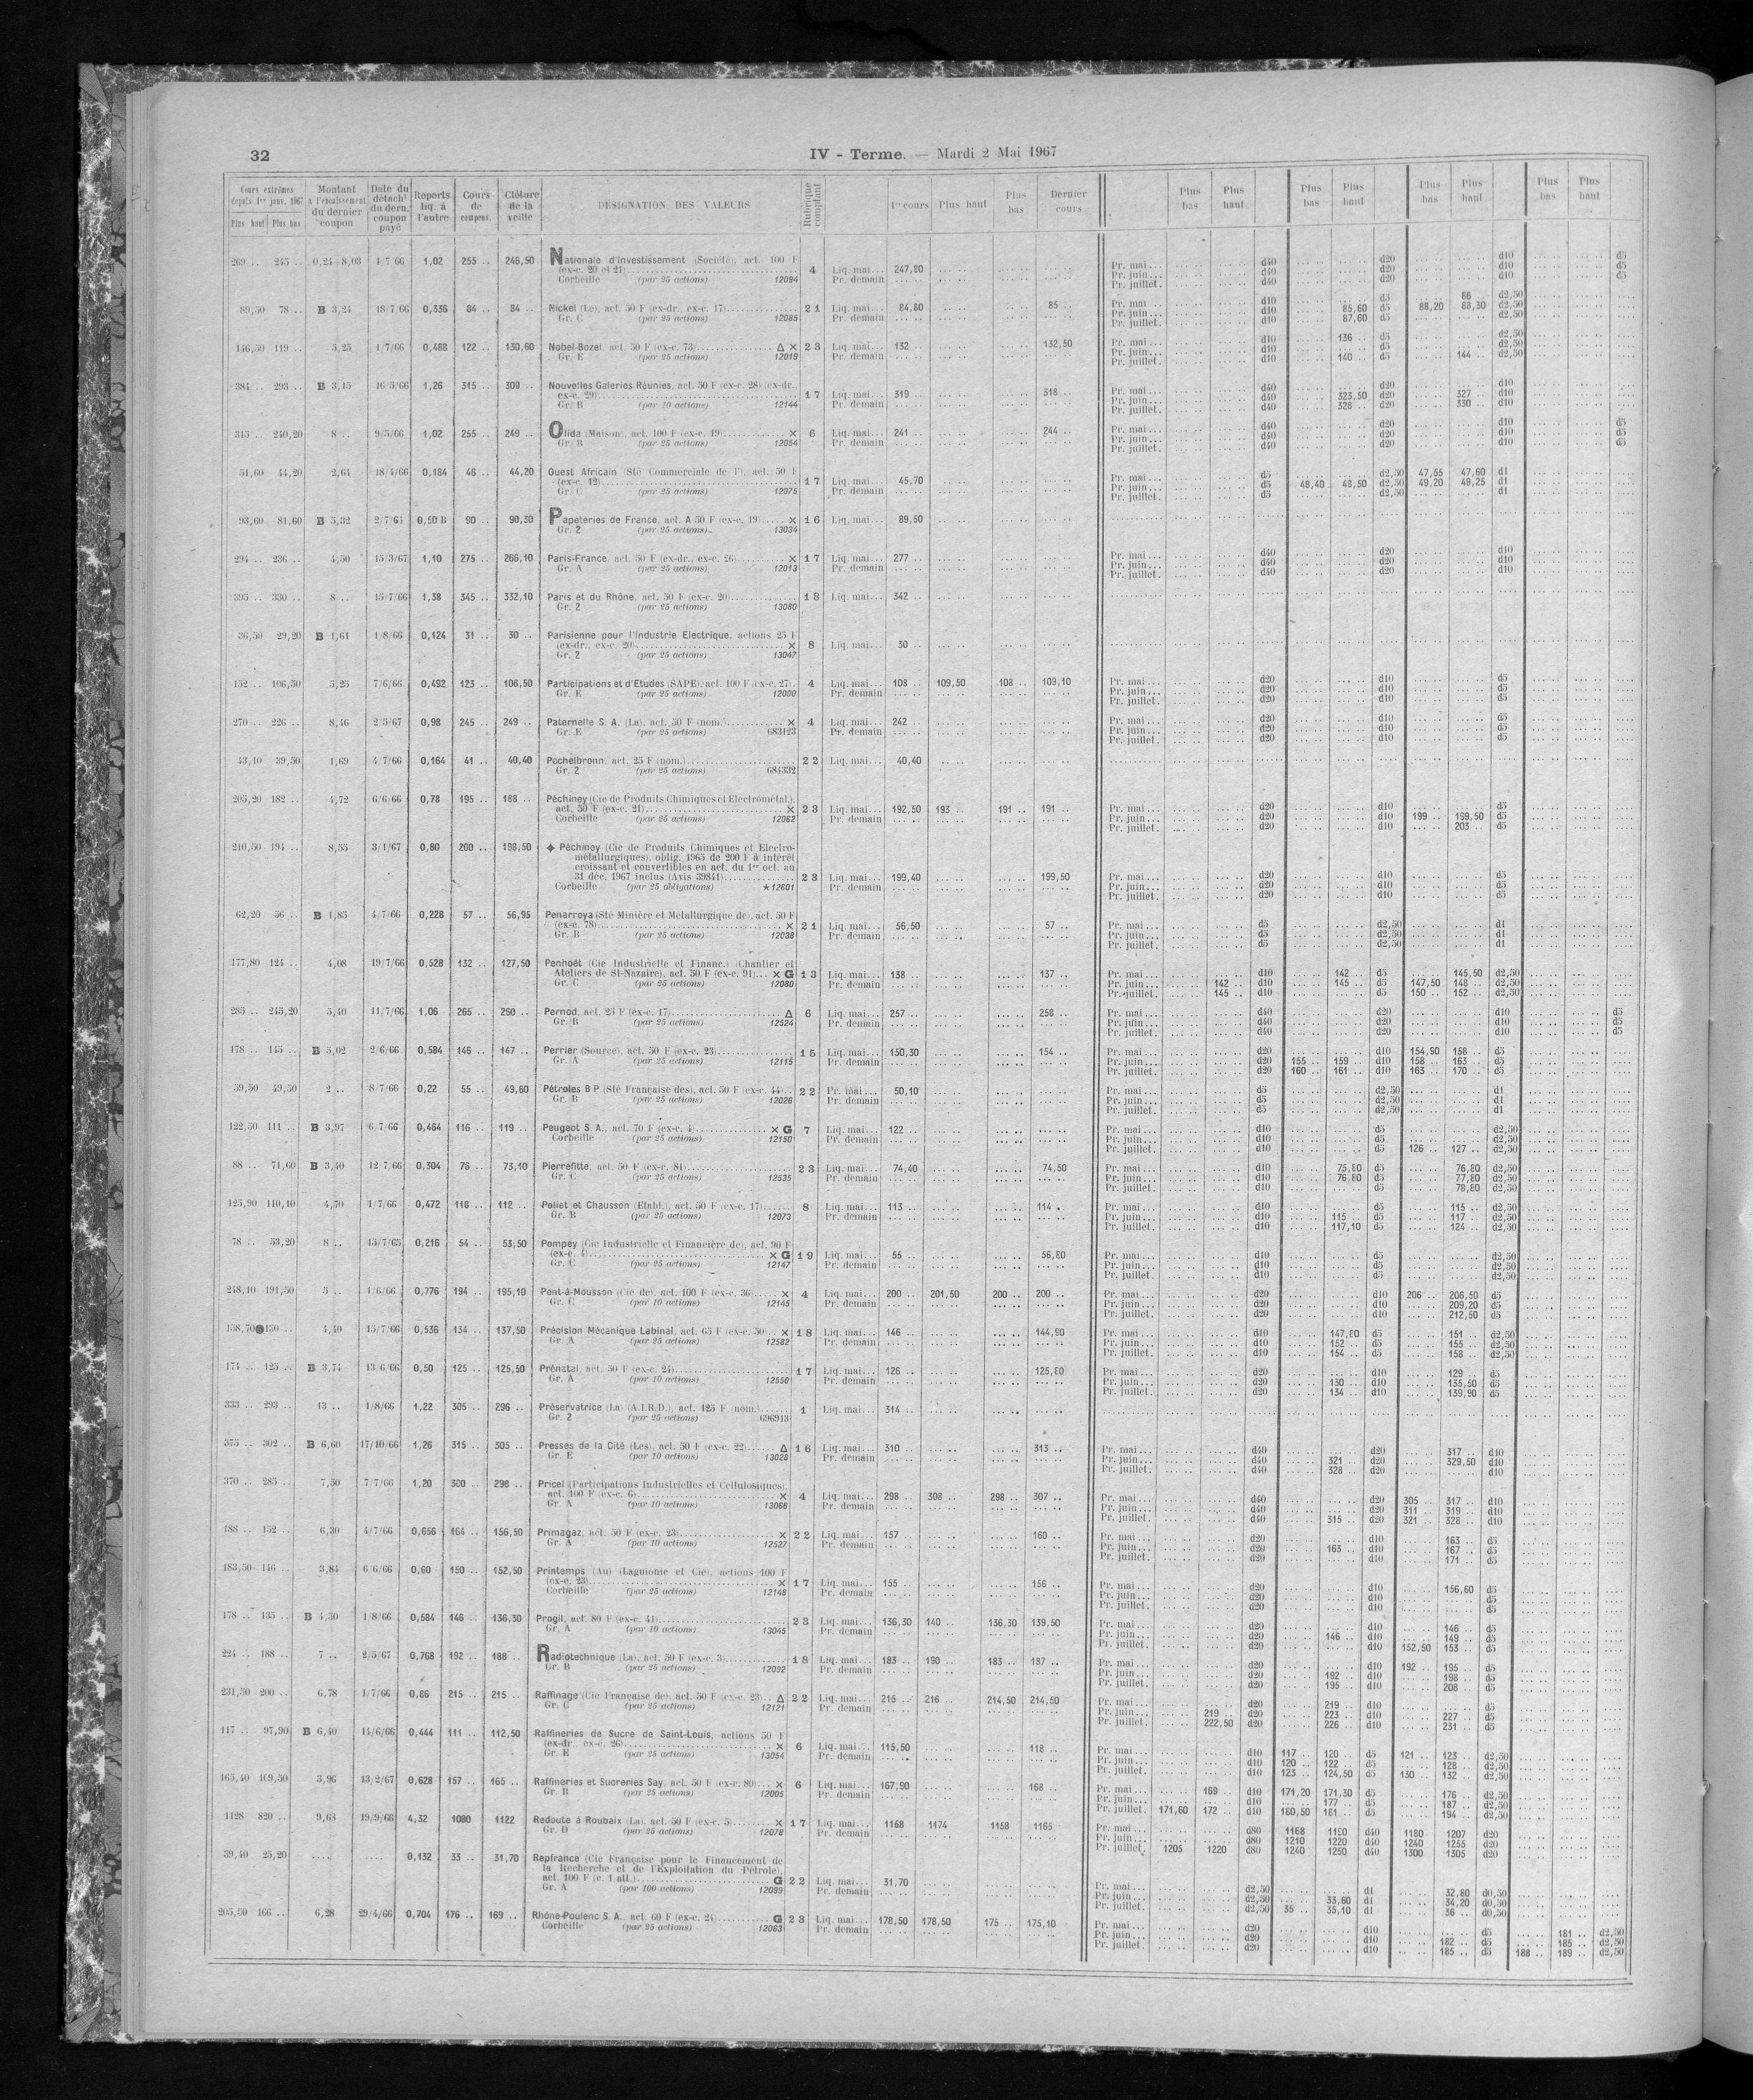 32
IV - Terme. — Mardi 2 Mai 1967
Cours extrêmes depuis 1er janv. 1967 Plus haut Plus bas | Montant à l'encaissement du dernier coupon | Date du détacht du dern. coupon payé | Reports liq. à l'autre | Cours de compens. | Clôture de la veille | DÉSIGNATION DES VALEURS | Rubrique comptant | 1er cours | Plus haut | Plus bas | Dernier cours | Plus bas | Plus haut | Plus bas | Plus haut | Plus bas | Plus haut | Plus bas | Plus haut
269 .. 245 .. 0,24+8,03 4/7 66 1,02 255 .. 246,50 Nationale d'Investissement (Société), act. 100 F
(ex-c. 20 et 21) 4 Liq. mai... 247,80 Pr. mai ... d40 d20 d10 d5
Corbeille (par 25 actions) 12094 Pr. demain Pr. juin... d40 d20 d10 d5
Pr. juillet. d40 d20 d10 d5
89,50 78 .. B 3,24 18/7/66 0,336 84 .. 84 .. Nickel (Le), act. 50 F (ex-dr., ex-c. 17) 21 Liq. mai... 84,80 85 .. Pr. mai ... d10 d5 86 .. d2,50
Gr. C (par 25 actions) 12085 Pr. demain Pr. juin... d10 85,60 d5 88,20 88,30 d2,50
Pr. juillet. d10 87,60 d5 d2,50
146,50 119 .. 5,25 1/7/66 0,488 122 .. 130,60 Nobel-Bozel, act. 50 F (ex-c. 73) Δ × 23 Liq. mai... 132 .. 132,50 Pr. mai ... d10 136 .. d5 d2,50
Gr. E (par 25 actions) 12019 Pr. demain Pr. juin... d10 d2,50
Pr. juillet. d10 140 .. d5 144 .. d2,50
384 .. 293 .. B 3,15 16/5/66 1,26 315 .. 309 .. Nouvelles Galeries Réunies, act. 50 F (ex-c. 28) (ex-dr.,
ex-c. 29) 17 Liq. mai... 319 .. 318 .. Pr. mai ... d40 d20 d10
Gr. B (par 10 actions) 12144 Pr. demain Pr. juin... d40 323,50 d20 327 .. d10
Pr. juillet. d40 328 .. d20 330 .. d10
315 .. 240,20 8 .. 9/5/66 1,02 255 .. 249 .. Olida (Maison), act. 100 F (ex-c. 19) × 6 Liq. mai... 241 .. 244 .. Pr. mai ... d40 d20 d10 d5
Gr. B (par 25 actions) 12054 Pr. demain Pr. juin... d40 d20 d10 d5
Pr. juillet. d40 d20 d10 d5
51,60 44,20 2,64 18/4/66 0,184 46 .. 44,20 Ouest Africain (Sté Commerciale de l'), act. 50 F
(ex-c. 12) 17 Liq. mai... 45,70 Pr. mai ... d5 d2,50 47,55 47,60 d1
Gr. C (par 25 actions) 12075 Pr. demain Pr. juin... d5 48,40 48,50 d2,50 49,20 49,25 d1
Pr. juillet. d5 d2,50 d1
93,60 81,60 B 5,32 2/7/64 0,50 B 90 .. 90,30 Papeteries de France, act. A 50 F (ex-c. 19) × 16 Liq. mai... 89,50
Gr. 2 (par 25 actions) 13034
294 .. 236 .. 4,50 15/3/67 1,10 275 .. 266,10 Paris-France, act. 50 F (ex-dr., ex-c. 26) × 17 Liq. mai... 277 .. Pr. mai ... d40 d20 d10
Gr. A (par 25 actions) 12013 Pr. demain Pr. juin... d40 d20 d10
Pr. juillet. d40 d20 d10
395 .. 330 .. 8 .. 15/7/66 1,38 345 .. 332,10 Paris et du Rhône, act. 50 F (ex-c. 20) 18 Liq. mai... 342 ..
Gr. 2 (par 25 actions) 13080
36,50 29,20 B 1,61 1/8/66 0,124 31 .. 30 .. Parisienne pour l'Industrie Electrique, actions 25 F
(ex-dr., ex-c. 20) × 8 Liq. mai... 30 ..
Gr. 2 (par 25 actions) 13047
152 .. 106,50 5,25 7/6/66 0,492 123 .. 106,50 Participations et d'Etudes (SAPE), act. 100 F (ex-c. 27) 4 Liq. mai... 108 .. 109,50 108 .. 109,10 Pr. mai ... d20 d10 d5
Gr. E (par 25 actions) 12090 Pr. demain Pr. juin... d20 d10 d5
Pr. juillet. d20 d10 d5
270 .. 226 .. 8,46 2/5/67 0,98 245 .. 249 .. Paternelle S. A. (La), act. 50 F (nom.) × 4 Liq. mai... 242 .. Pr. mai ... d20 d10 d5
Gr. E (par 25 actions) 683123 Pr. demain Pr. juin... d20 d10 d5
Pr. juillet. d20 d10 d5
43,40 39,50 1,69 4/7/66 0,164 41 .. 40,40 Pechelbronn, act. 25 F (nom.) 22 Liq. mai... 40,40
Gr. 2 (par 25 actions) 684332
205,20 182 .. 4,72 6/6/66 0,78 195 .. 188 .. Péchiney (Cie de Produits Chimiques et Electrométal.),
act. 50 F (ex-c. 21) × 23 Liq. mai... 192,50 193 .. 191 .. 191 .. Pr. mai ... d20 d10 d5
Corbeille (par 25 actions) 12062 Pr. demain Pr. juin... d20 d10 199 .. 199,50 d5
Pr. juillet. d20 d10 203 .. d5
210,50 194 .. 8,55 3/1/67 0,80 200 .. 198,50 ✦ Péchiney (Cie de Produits Chimiques et Electro-
métallurgiques), oblig. 1965 de 200 F à intérêt
croissant et convertibles en act. du 1er oct. au
31 déc. 1967 inclus (Avis 39841) 23 Liq. mai... 199,40 199,50 Pr. mai ... d20 d10 d5
Corbeille (par 25 obligations) ★ 12601 Pr. demain Pr. juin... d20 d10 d5
Pr. juillet. d20 d10 d5
62,20 56 .. B 1,85 4/7/66 0,228 57 .. 56,95 Penarroya (Sté Minière et Métallurgique de), act. 50 F
(ex-c. 78) × 21 Liq. mai... 56,50 57 .. Pr. mai ... d5 d2,50 d1
Gr. B (par 25 actions) 12038 Pr. demain Pr. juin... d5 d2,50 d1
Pr. juillet. d5 d2,50 d1
177,80 124 .. 4,08 19/7/66 0,528 132 .. 127,50 Penhoët (Cie Industrielle et Financ.) (Chantier et
Ateliers de St-Nazaire), act. 50 F (ex-c. 91) × G 13 Liq. mai... 138 .. 137 .. Pr. mai ... d10 142 .. d5 145,50 d2,50
Gr. C (par 25 actions) 12080 Pr. demain Pr. juin... 142 .. d10 145 .. d5 147,50 148 .. d2,50
Pr. juillet. 145 .. d10 d5 150 .. 152 .. d2,50
285 .. 245,20 5,40 11/7/66 1,06 265 .. 260 .. Pernod, act. 25 F (ex-c. 17) Δ 6 Liq. mai... 257 .. 258 .. Pr. mai ... d40 d20 d10 d5
Gr. B (par 25 actions) 12524 Pr. demain Pr. juin... d40 d20 d10 d5
Pr. juillet. d40 d20 d10 d5
178 .. 145 .. B 5,02 2/6/66 0,584 146 .. 147 .. Perrier (Source), act. 50 F (ex-c. 23) 15 Liq. mai... 150,30 154 .. Pr. mai ... d20 d10 154,90 158 .. d5
Gr. A (par 25 actions) 12115 Pr. demain Pr. juin... d20 155 .. 159 .. d10 158 .. 163 .. d5
Pr. juillet. d20 160 .. 161 .. d10 163 .. 170 .. d5
59,50 49,50 2 .. 8/7/66 0,22 55 .. 49,60 Pétroles B P (Sté Française des), act. 50 F (ex-c. 44) 22 Pr. mai... 50,10 Pr. mai ... d5 d2,50 d1
Gr. B (par 25 actions) 12026 Pr. demain Pr. juin... d5 d2,50 d1
Pr. juillet. d5 d2,50 d1
122,50 111 .. B 3,97 6/7/66 0,464 116 .. 119 .. Peugeot S. A., act. 70 F (ex-c. 4) × G 7 Liq. mai... 122 .. Pr. mai ... d10 d5 d2,50
Corbeille (par 25 actions) 12150 Pr. demain Pr. juin... d10 d5 d2,50
Pr. juillet. d10 d5 126 .. 127 .. d2,50
88 .. 71,60 B 3,40 12/7/66 0,304 76 .. 73,10 Pierrefitte, act. 50 F (ex-c. 81) 23 Liq. mai... 74,40 74,50 Pr. mai ... d10 75,80 d5 76,80 d2,50
Gr. C (par 25 actions) 12535 Pr. demain Pr. juin... d10 76,80 d5 77,80 d2,50
Pr. juillet. d10 d5 78,80 d2,50
125,90 110,10 4,70 1/7/66 0,472 118 .. 112 .. Poliet et Chausson (Etabl.), act. 50 F (ex-c. 17) 8 Liq. mai... 113 .. 114 .. Pr. mai ... d10 d5 115 .. d2,50
Gr. B (par 25 actions) 12073 Pr. demain Pr. juin... d10 115 .. d5 117 .. d2,50
Pr. juillet. d10 117,10 d5 124 .. d2,50
78 .. 53,20 8 .. 15/7/65 0,216 54 .. 53,50 Pompey (Cie Industrielle et Financière de), act. 90 F
(ex-c. 4) × G 19 Liq. mai... 55 .. 56,80 Pr. mai ... d10 d5 d2,50
Gr. C (par 25 actions) 12147 Pr. demain Pr. juin... d10 d5 d2,50
Pr. juillet. d10 d5 d2,50
248,10 191,50 5 .. 1/6/66 0,776 194 .. 195,10 Pont-à-Mousson (Cie de), act. 100 F (ex-c. 36) × 4 Liq. mai... 200 .. 201,50 200 .. 200 .. Pr. mai ... d20 d10 206 .. 206,50 d5
Gr. C (par 10 actions) 12145 Pr. demain Pr. juin... d20 d10 209,20 d5
Pr. juillet. d20 d10 212,50 d5
158,70 ● 130 .. 4,40 15/7/66 0,536 134 .. 137,50 Précision Mécanique Labinal, act. 65 F (ex-c. 50) × 18 Liq. mai... 146 .. 144,90 Pr. mai ... d10 147,80 d5 151 .. d2,50
Gr. A (par 25 actions) 12582 Pr. demain Pr. juin... d10 152 .. d5 155 .. d2,50
Pr. juillet. d10 154 .. d5 158 .. d2,50
174 .. 125 .. B 3,74 13/6/66 0,50 125 .. 125,50 Prénatal, act. 50 F (ex-c. 24) 17 Liq. mai... 126 .. 125,80 Pr. mai ... d20 d10 129 .. d5
Gr. A (par 10 actions) 12550 Pr. demain Pr. juin... d20 130 .. d10 135,50 d5
Pr. juillet. d20 134 .. d10 139,90 d5
333 .. 293 .. 13 .. 1/8/66 1,22 305 .. 296 .. Préservatrice (La) (A.I.R.D.), act. 125 F (nom.) 1 Liq. mai... 314 ..
Gr. 2 (par 25 actions) 696913
375 .. 302 .. B 6,60 17/10/66 1,26 315 .. 305 .. Presses de la Cité (Les), act. 50 F (ex-c. 22) Δ 16 Liq. mai... 310 .. 313 .. Pr. mai ... d40 d20 317 .. d10
Gr. E (par 10 actions) 13028 Pr. demain Pr. juin... d40 321 .. d20 329,50 d10
Pr. juillet. d40 328 .. d20 d10
370 .. 285 .. 7,50 7/7/66 1,20 300 .. 298 .. Pricel (Participations Industrielles et Cellulosiques),
act. 100 F (ex-c. 6) × 4 Liq. mai... 298 .. 308 .. 298 .. 307 .. Pr. mai ... d40 d20 305 .. 317 .. d10
Gr. A (par 10 actions) 13066 Pr. demain Pr. juin... d40 d20 311 .. 319 .. d10
Pr. juillet. d40 315 .. d20 321 .. 328 .. d10
188 .. 152 .. 6,30 4/7/66 0,656 164 .. 156,50 Primagaz, act. 50 F (ex-c. 23) × 22 Liq. mai... 157 .. 160 .. Pr. mai ... d20 d10 163 .. d5
Gr. A (par 10 actions) 12527 Pr. demain Pr. juin... d20 163 .. d10 167 .. d5
Pr. juillet. d20 d10 171 .. d5
183,50 146 .. 3,84 6/6/66 0,60 150 .. 152,50 Printemps (Au) (Laguionie et Cie), actions 100 F
(ex-c. 23) × 17 Liq. mai... 155 .. 156 .. Pr. mai ... d20 d10 156,60 d5
Corbeille (par 25 actions) 12148 Pr. demain Pr. juin... d20 d10 d5
Pr. juillet. d20 d10 d5
178 .. 135 .. B 4,50 1/8/66 0,584 146 .. 136,30 Progil, act. 80 F (ex-c. 41) 23 Liq. mai... 136,30 140 .. 136,30 139,50 Pr. mai ... d20 d10 146 .. d5
Gr. A (par 10 actions) 13045 Pr. demain Pr. juin... d20 146 .. d10 149 .. d5
Pr. juillet. d20 d10 152,50 153 .. d5
224 .. 188 .. 7 .. 2/5/67 0,768 192 .. 188 .. Radiotechnique (La), act. 50 F (ex-c. 3) 18 Liq. mai... 183 .. 190 .. 183 .. 187 .. Pr. mai ... d20 d10 192 .. 195 .. d5
Gr. B (par 25 actions) 12092 Pr. demain Pr. juin... d20 192 .. d10 198 .. d5
Pr. juillet. d20 195 .. d10 208 .. d5
231,50 200 .. 6,78 1/7/66 0,86 215 .. 215 .. Raffinage (Cie Française de), act. 50 F (ex-c. 23) Δ 22 Liq. mai... 215 .. 216 .. 214,50 214,50 Pr. mai ... d20 219 .. d10 d5
Gr. C (par 25 actions) 12121 Pr. demain Pr. juin... 219 .. d20 223 .. d10 227 .. d5
Pr. juillet. 222,50 d20 226 .. d10 231 .. d5
117 .. 97,90 B 6,40 14/6/66 0,444 111 .. 112,50 Raffineries de Sucre de Saint-Louis, actions 50 F
(ex-dr., ex-c. 26) × 6 Liq. mai... 115,50 118 .. Pr. mai ... d10 117 .. 120 .. d5 121 .. 123 .. d2,50
Gr. E (par 25 actions) 13054 Pr. demain Pr. juin... d10 120 .. 122 .. d5 128 .. d2,50
Pr. juillet. d10 123 .. 124,50 d5 130 .. 132 .. d2,50
165,40 109,50 3,96 13/2/67 0,628 157 .. 165 .. Raffineries et Sucreries Say, act. 50 F (ex-c. 80) × 6 Liq. mai... 167,90 168 .. Pr. mai ... 169 .. d10 171,20 171,30 d5 176 .. d2,50
Gr. B (par 25 actions) 12005 Pr. demain Pr. juin... d10 177 .. d5 187 .. d2,50
Pr. juillet. 171,60 172 .. d10 180,50 181 .. d5 194 .. d2,50
1128 820 .. 9,63 19/9/66 4,32 1080 1122 Redoute à Roubaix (La), act. 50 F (ex-c. 5) × 17 Liq. mai... 1168 1174 1158 1165 Pr. mai ... d80 1168 1190 d40 1180 1207 d20
Gr. D (par 25 actions) 12078 Pr. demain Pr. juin... d80 1210 1220 d40 1240 1255 d20
Pr. juillet. 1205 1220 d80 1240 1250 d40 1300 1305 d20
39,40 25,20 .... .... 0,132 33 .. 31,70 Repfrance (Cie Française pour le Financement de
la Recherche et de l'Exploitation du Pétrole),
act. 100 F (c. 1 att.) G 22 Liq. mai... 31,70 Pr. mai ... d2,50 d1 32,80 d0,50
Gr. A (par 100 actions) 12099 Pr. demain Pr. juin... d2,50 33,60 d1 34,20 d0,50
Pr. juillet. d2,50 35 .. 35,10 d1 36 .. d0,50
205,50 166 .. 6,28 29/4/66 0,704 176 .. 169 .. Rhône-Poulenc S. A., act. 60 F (ex-c. 24) G 23 Liq. mai... 178,50 178,50 175 .. 175,10 Pr. mai ... d20 d10 d5 181 .. d2,50
Corbeille (par 25 actions) 12063 Pr. demain Pr. juin... d20 d10 182 .. d5 185 .. d2,50
Pr. juillet. d20 d10 185 .. d5 188 .. 189 .. d2,50